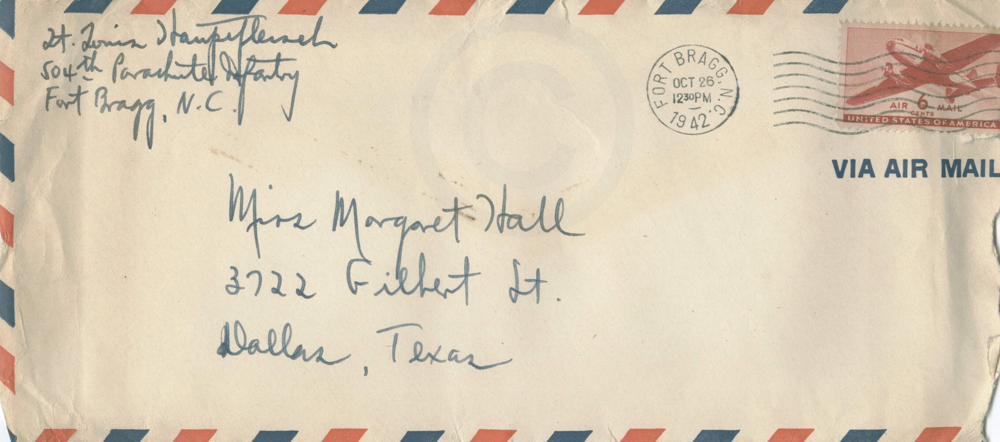 Lt. Louis Hauptfleisch
504th Parachute Infantry
Fort Bragg, N.C.
FORT BRAGG, N.C.
OCT 26
12 30 PM
1942
AIR 6 MAIL
CENTS
UNITED STATES OF AMERICA
VIA AIR MAIL
Miss Margaret Hall
3722 Gilbert St.
Dallas, Texas